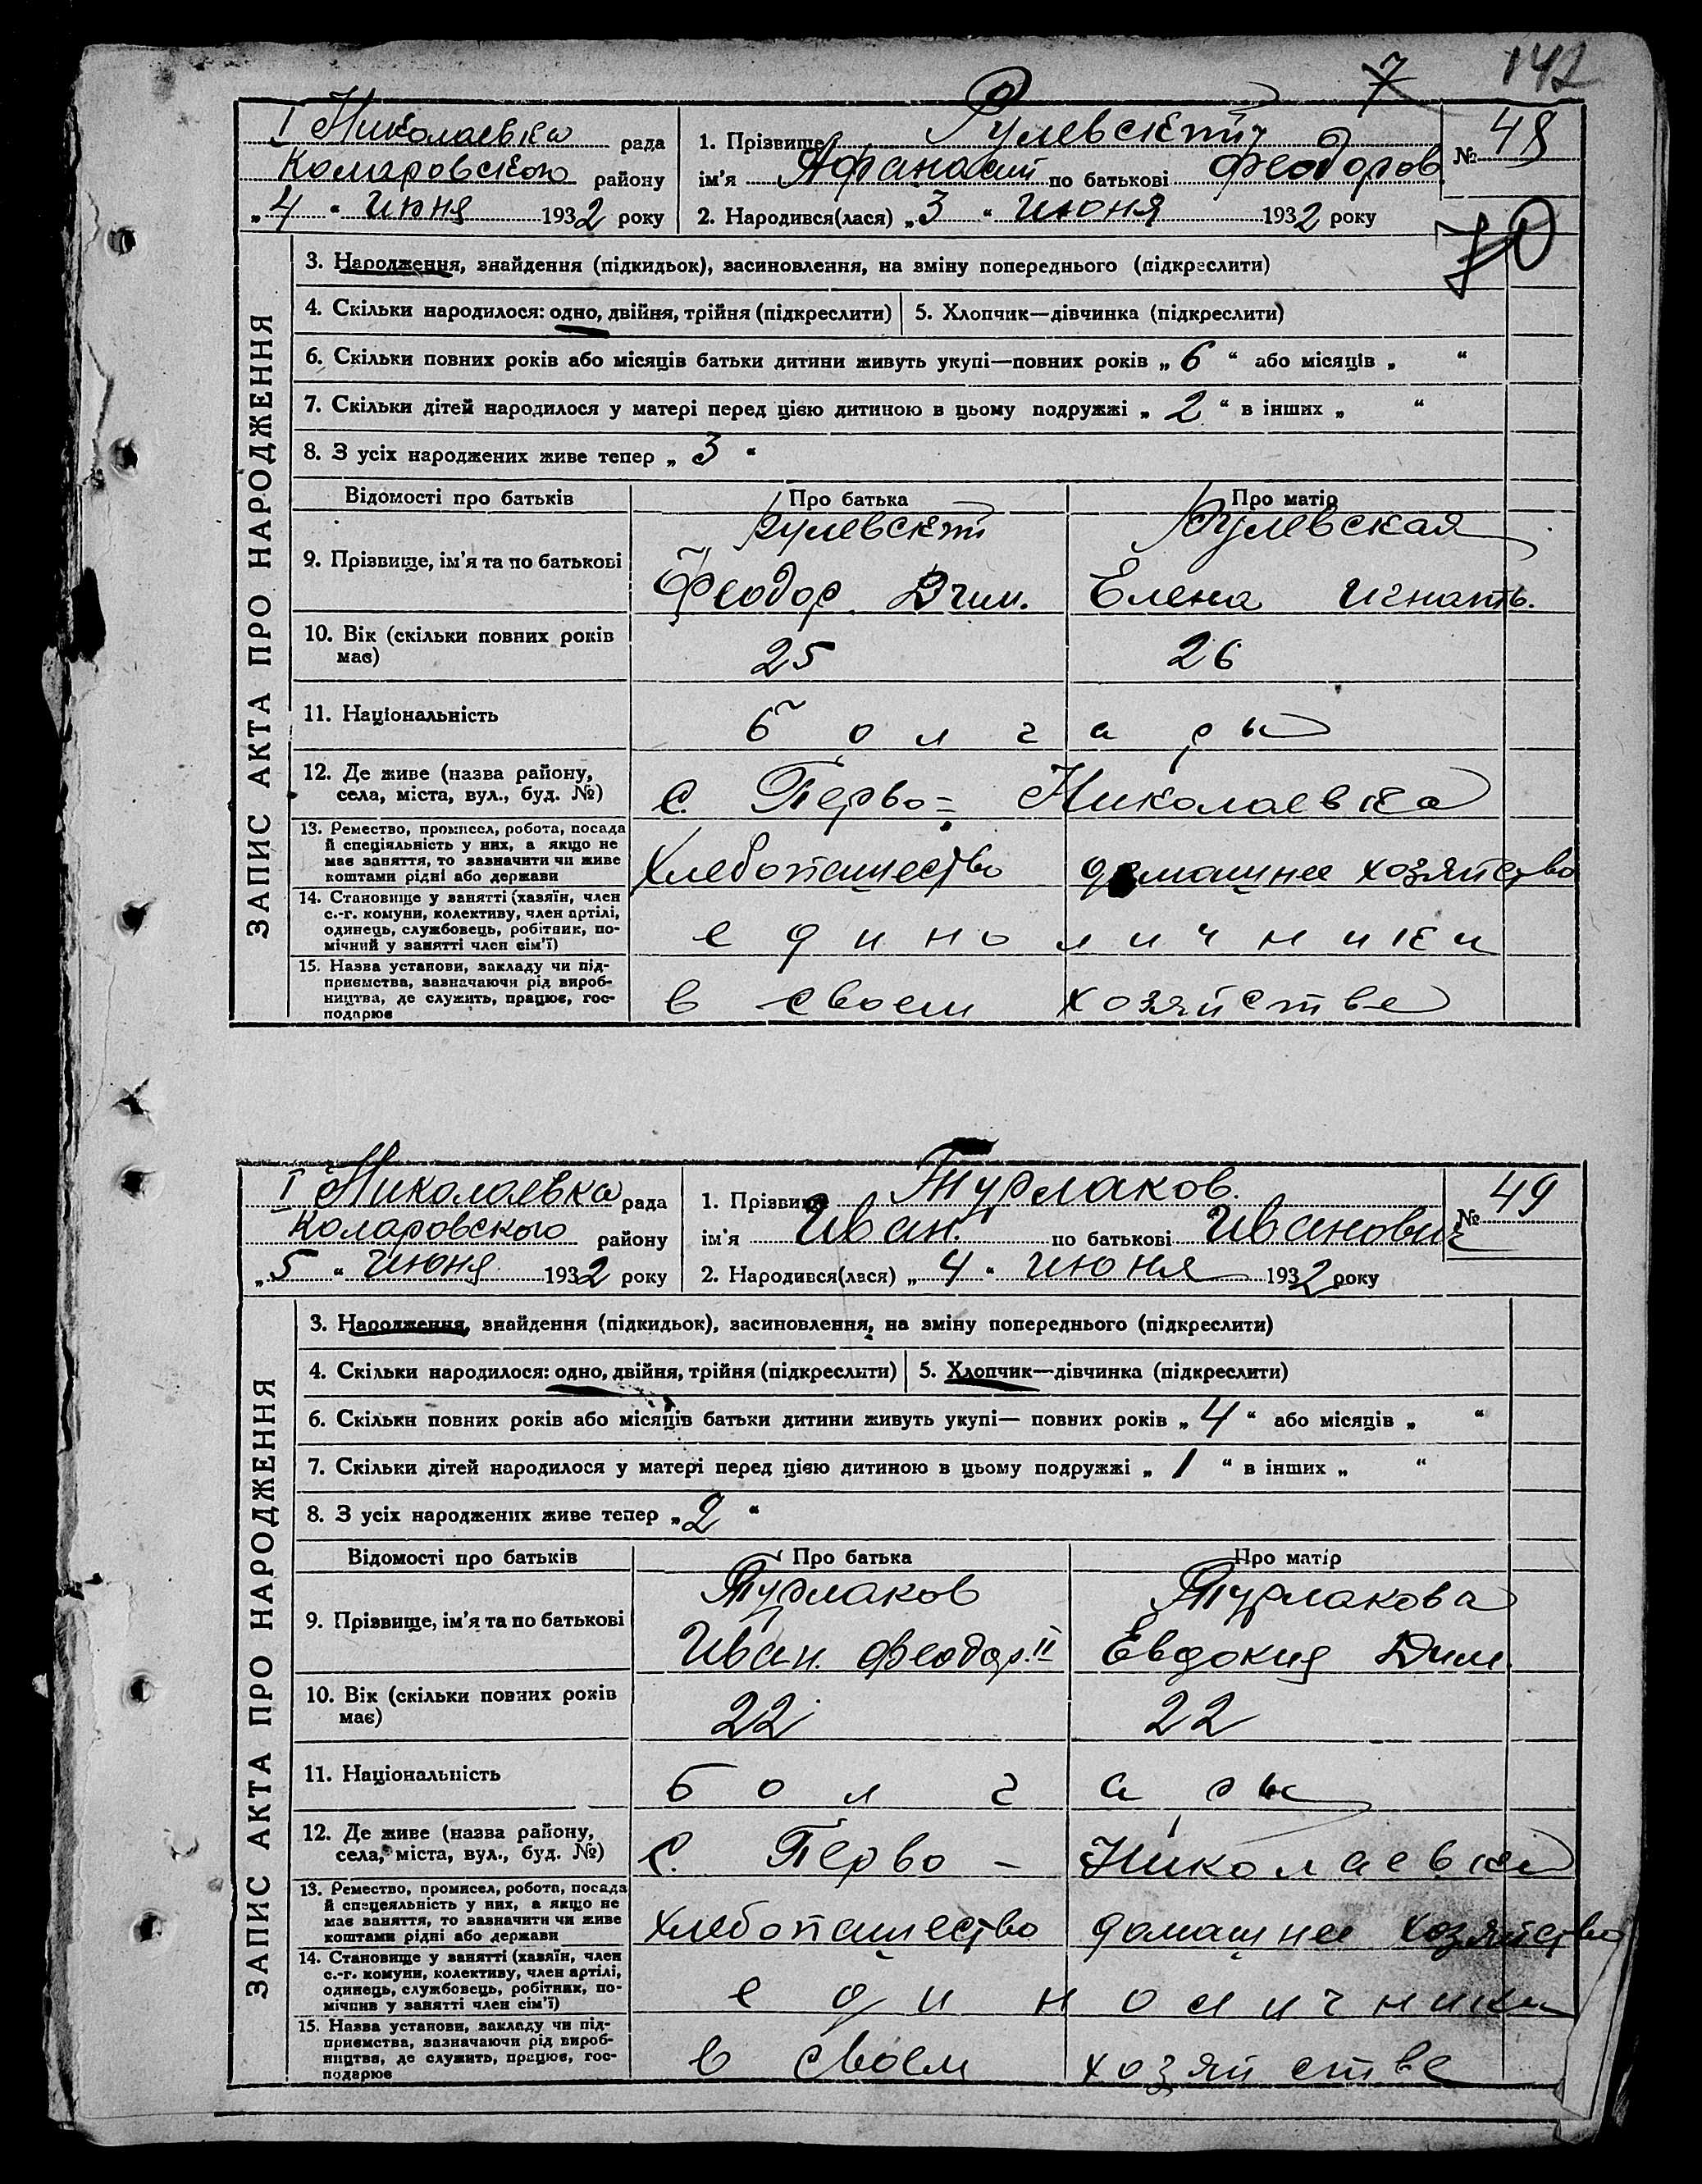 142
7
I Николаевка рада
Коларовского району
„4" июня 1932 року
1. Прізвище Рулевский
ім'я Афанасий по батькові Феодоров.
2. Народився(лася) „3" июня 1932 року
№ 48
70
ЗАПИС АКТА ПРО НАРОДЖЕННЯ
3. Народження, знайдення (підкидьок), засиновлення, на зміну попереднього (підкреслити)
4. Скільки народилося: одно, двійня, трійня (підкреслити) 5. Хлопчик—дівчинка (підкреслити)
6. Скільки повних років або місяців батьки дитини живуть укупі—повних років „6" або місяців „ "
7. Скільки дітей народилося у матері перед цією дитиною в цьому подружжі „2" в інших „ "
8. З усіх народжених живе тепер „3"
Відомості про батьків Про батька Про матір
Рулевский Рулевская
9. Прізвище, ім'я та по батькові
Феодор Дим. Елена Игнать.
10. Вік (скільки повних років
має)
25 26
11. Національність болгары
12. Де живе (назва району,
села, міста, вул., буд. №)
с. Перво= Николаевка
13. Ремество, промисел, робота, посада
й спеціяльність у них, а якщо не
має заняття, то зазначити чи живе
коштами рідні або держави
Хлебопашество домашнее хозяйство
14. Становище у занятті (хазяїн, член
с.-г. комуни, колективу, член артілі,
одинець, службовець, робітник, по-
мічний у занятті член сім'ї)
единоличники
15. Назва установи, закладу чи під-
приємства, зазначаючи рід вироб-
ництва, де служить, працює, гос-
подарює
в своем хозяйстве
I Николаевка рада
Коларовского району
„5" июня 1932 року
1. Прізвище Турлаков.
ім'я Иван. по батькові Иванович
2. Народився(лася) „4" июня 1932 року
№ 49
ЗАПИС АКТА ПРО НАРОДЖЕННЯ
3. Народження, знайдення (підкидьок), засиновлення, на зміну попереднього (підкреслити)
4. Скільки народилося: одно, двійня, трійня (підкреслити) 5. Хлопчик—дівчинка (підкреслити)
6. Скільки повних років або місяців батьки дитини живуть укупі— повних років „4" або місяців „ "
7. Скільки дітей народилося у матері перед цією дитиною в цьому подружжі „1" в інших „ "
8. З усіх народжених живе тепер „2"
Відомості про батьків Про батька Про матір
Турлаков Турлакова
9. Прізвище, ім'я та по батькові
Иван. Феодор. II Евдокия Дим.
10. Вік (скільки повних років
має)
22 22
11. Національність болгары
12. Де живе (назва району,
села, міста, вул., буд. №)
с. Перво - Николаевка
13. Ремество, промисел, робота, посада
й спецеяльність у них, а якщо не
має заняття, то зазначити чи живе
коштами рідні або держави
хлебопашество домашнее хозяйство
14. Становище у занятті (хазяїн, член
с.-г. комуни, колективу, член артілі,
одинець, службовець, робітник, по-
мічнив у занятті член сім'ї)
единоличники
15. Назва установи, закладу чи під-
приємства, зазначаючи рід вироб-
ництва, де служить, працює, гос-
подарює
в своем хозяйстве